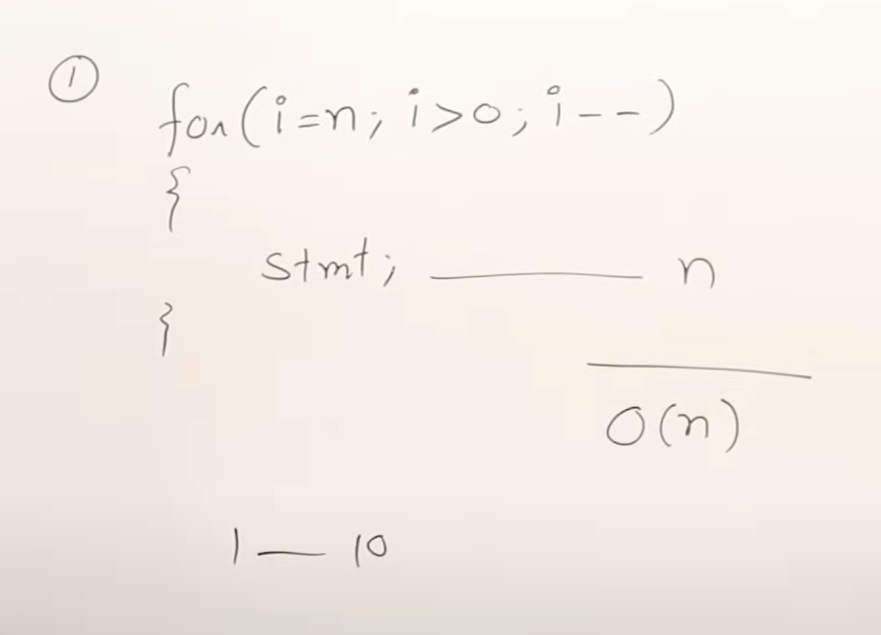 ① for(i=n; i>0; i--)
{
stmt; —— n
}
O(n)
1 — 10